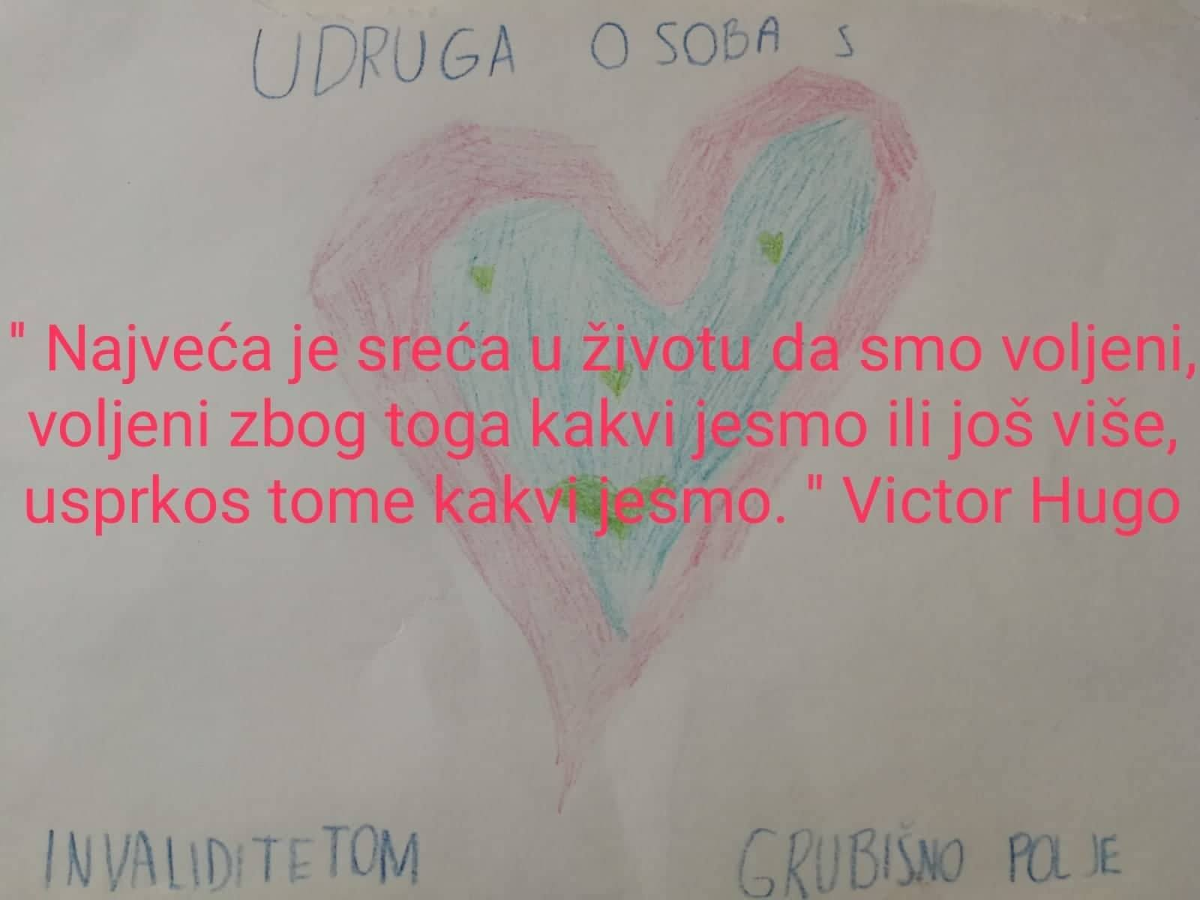 UDRUGA OSOBA S
" Najveća je sreća u životu da smo voljeni,
voljeni zbog toga kakvi jesmo ili još više,
usprkos tome kakvi jesmo. " Victor Hugo
INVALIDITETOM GRUBIŠNO POLJE